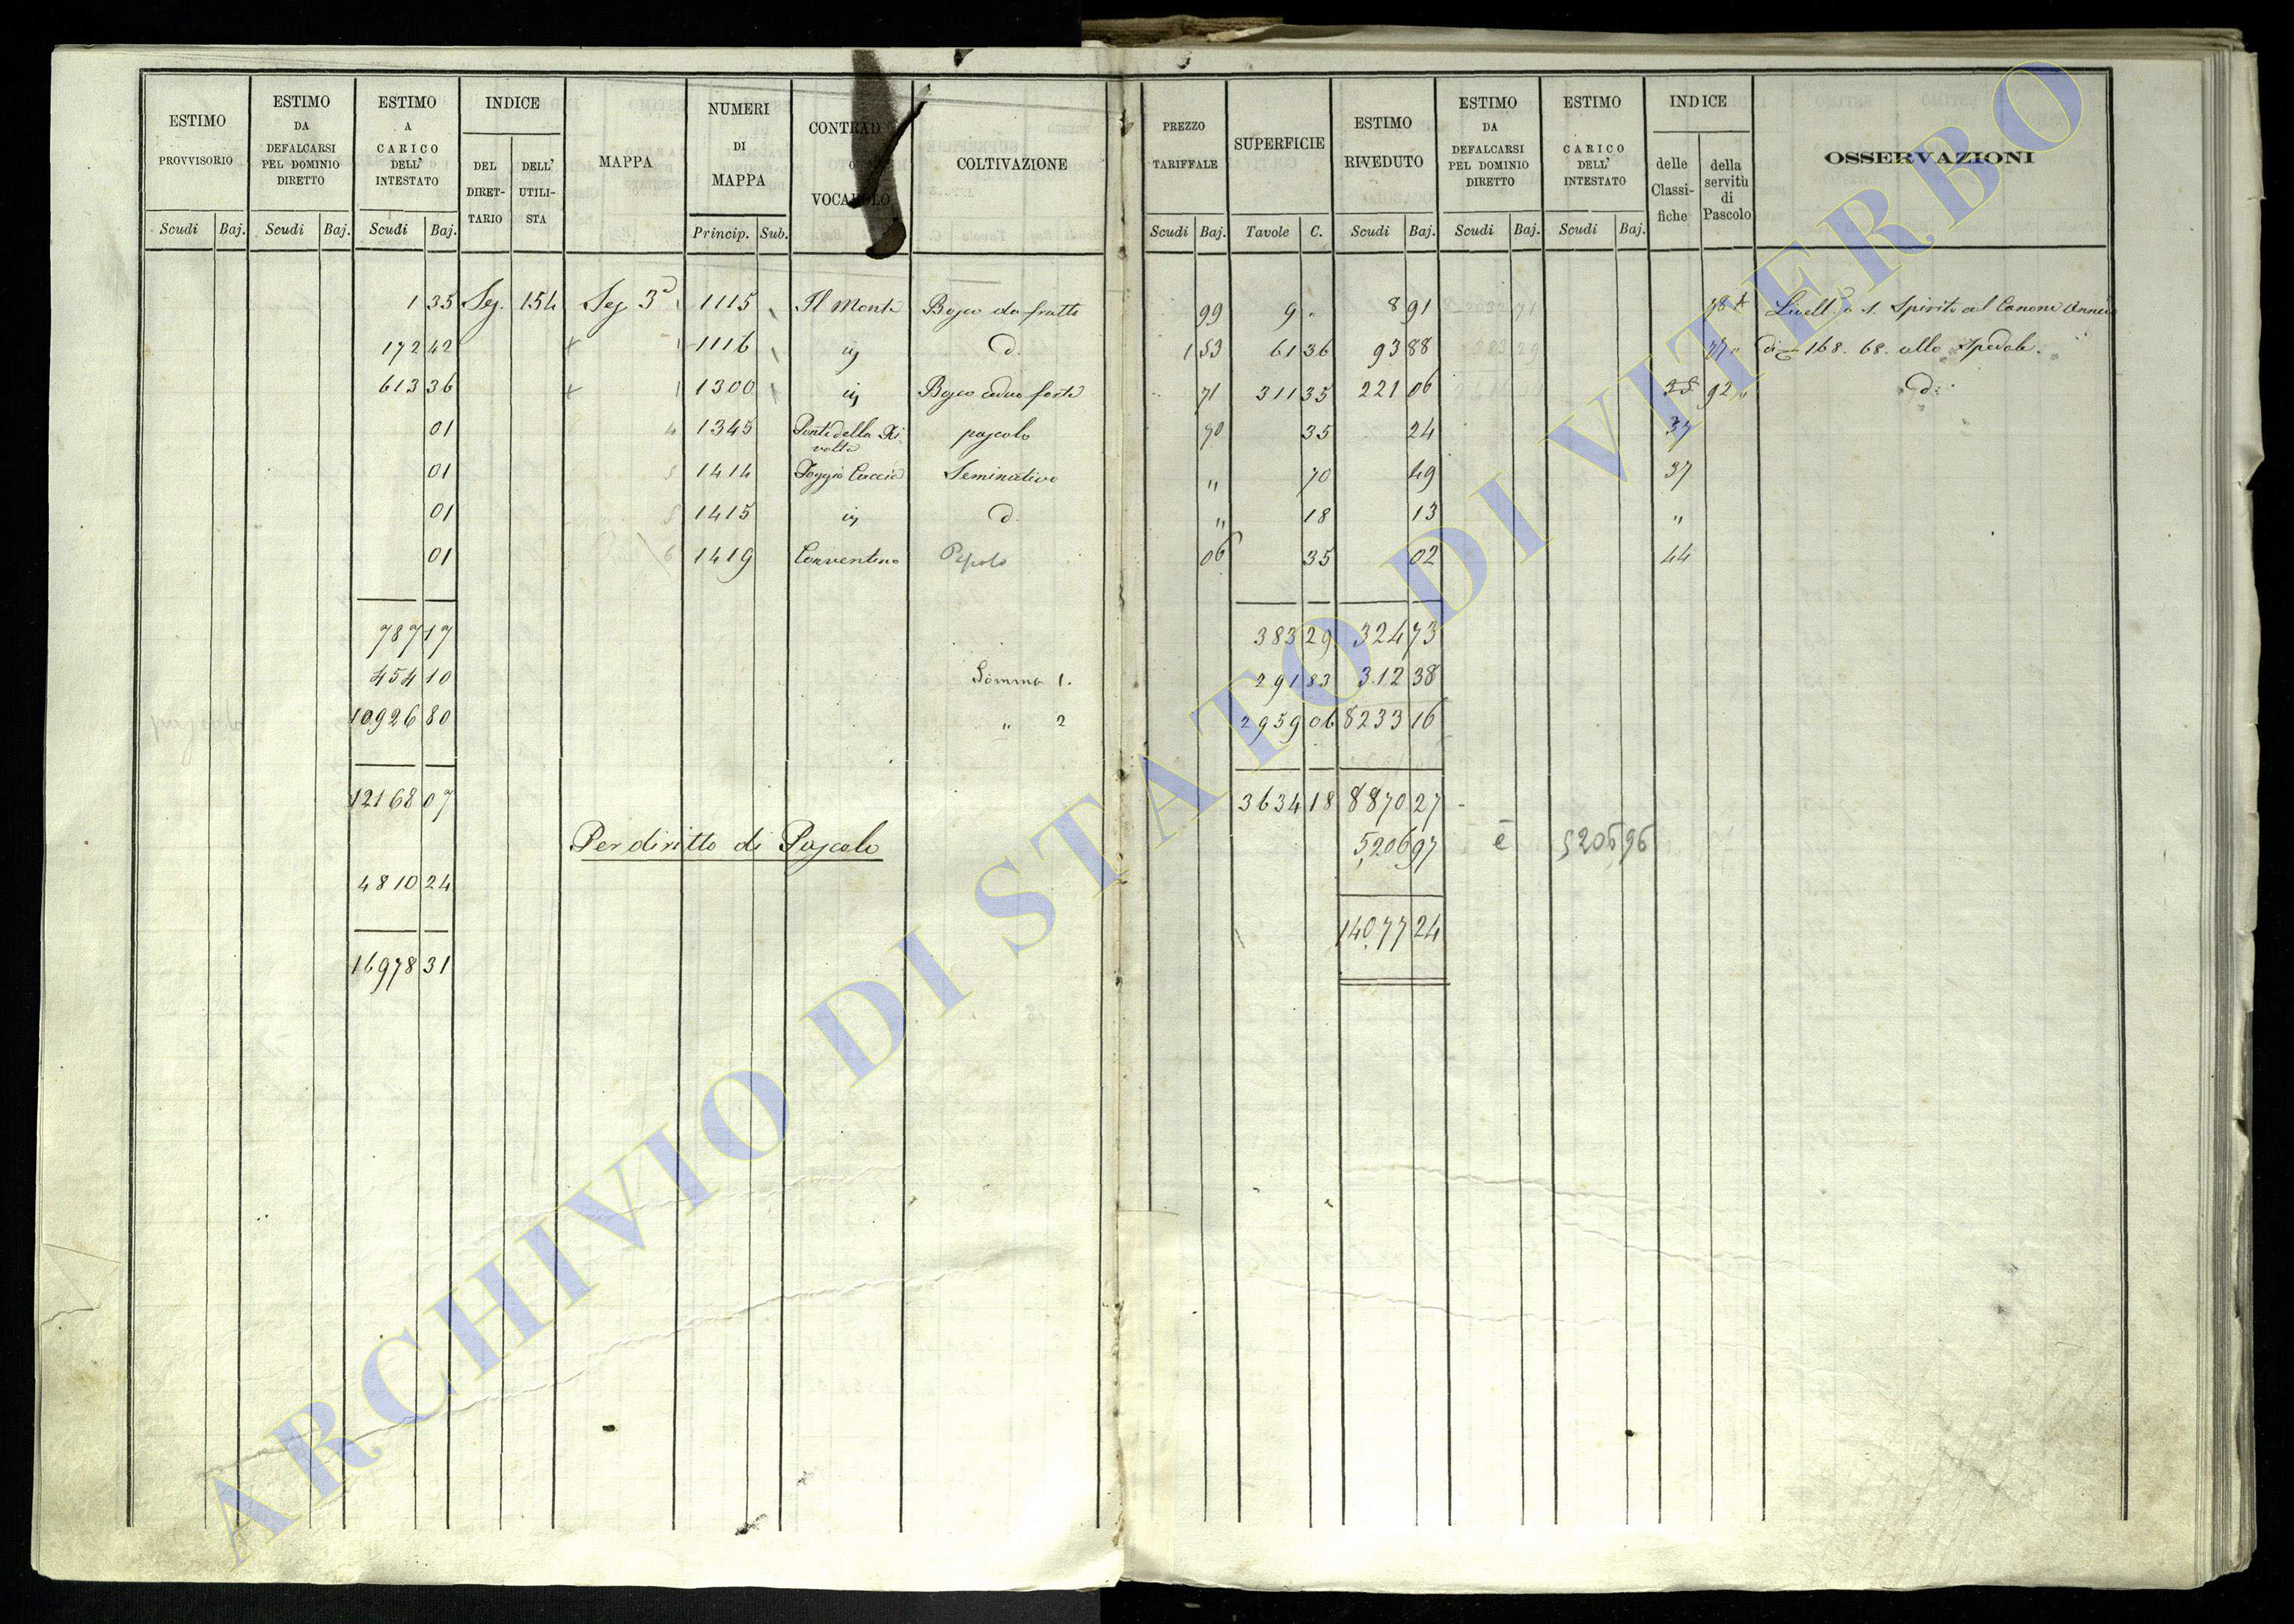 ESTIMO PROVVISORIO
ESTIMO DA DEFALCARSI PEL DOMINIO DIRETTO
ESTIMO A CARICO DELL' INTESTATO
INDICE
DEL DIRETTARIO
DELL' UTILISTA
MAPPA
NUMERI DI MAPPA
COLTIVAZIONE
PREZZO TARIFFALE
SUPERFICIE
ESTIMO RIVEDUTO
ESTIMO DA DEFALCARSI PEL DOMINIO DIRETTO
ESTIMO A CARICO DELL' INTESTATO
INDICE
delle Classifiche
della servitù di Pascolo
OSSERVAZIONI
Scudi Baj. Scudi Baj. Scudi Baj. Princip. Sub. Scudi Baj. Tavole C. Scudi Baj. Scudi Baj. Scudi Baj.
1 35 Seg. 154 Seg 3ª 1115 Il Monte Bosco da frutto 99 9 8 91 Livell. a S. Spirito al Canone Annuo
172 42 1116 d. 1 53 61 36 93 88 di 168. 68. allo Spedale.
613 36 1300 Bosco ceduo forte 71 311 35 221 06 92 d.
01 1345 Ponte della Rivolta pascolo 70 35 24 37
01 1414 Poggio Caccia Seminativo " 70 49 37
01 1415 d. " 18 13 "
01 1419 Conventino 06 35 02 44
787 17 383 29 324 73
454 10 Somma 1. 291 83 312 38
10926 80 " 2 2959 06 8233 16
12168 07 3634 18 8870 27
Per diritto di Pascolo 5206 97 è 5206 96
4810 24
14077 24
16978 31
ARCHIVIO DI STATO DI VITERBO